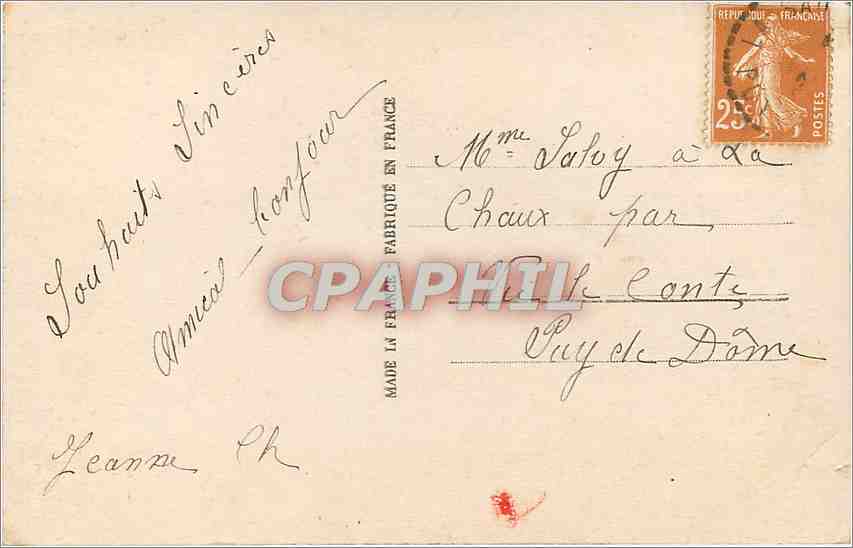 Souhaits Sincères
Amical bonjour
Jeanne Ch
MADE IN FRANCE FABRIQUÉ EN FRANCE
REPUBLIQUE FRANÇAISE
25c
POSTES
Mme Salvy à La
Chaux par
Vic le Conte
Puy de Dôme
CPAPHIL